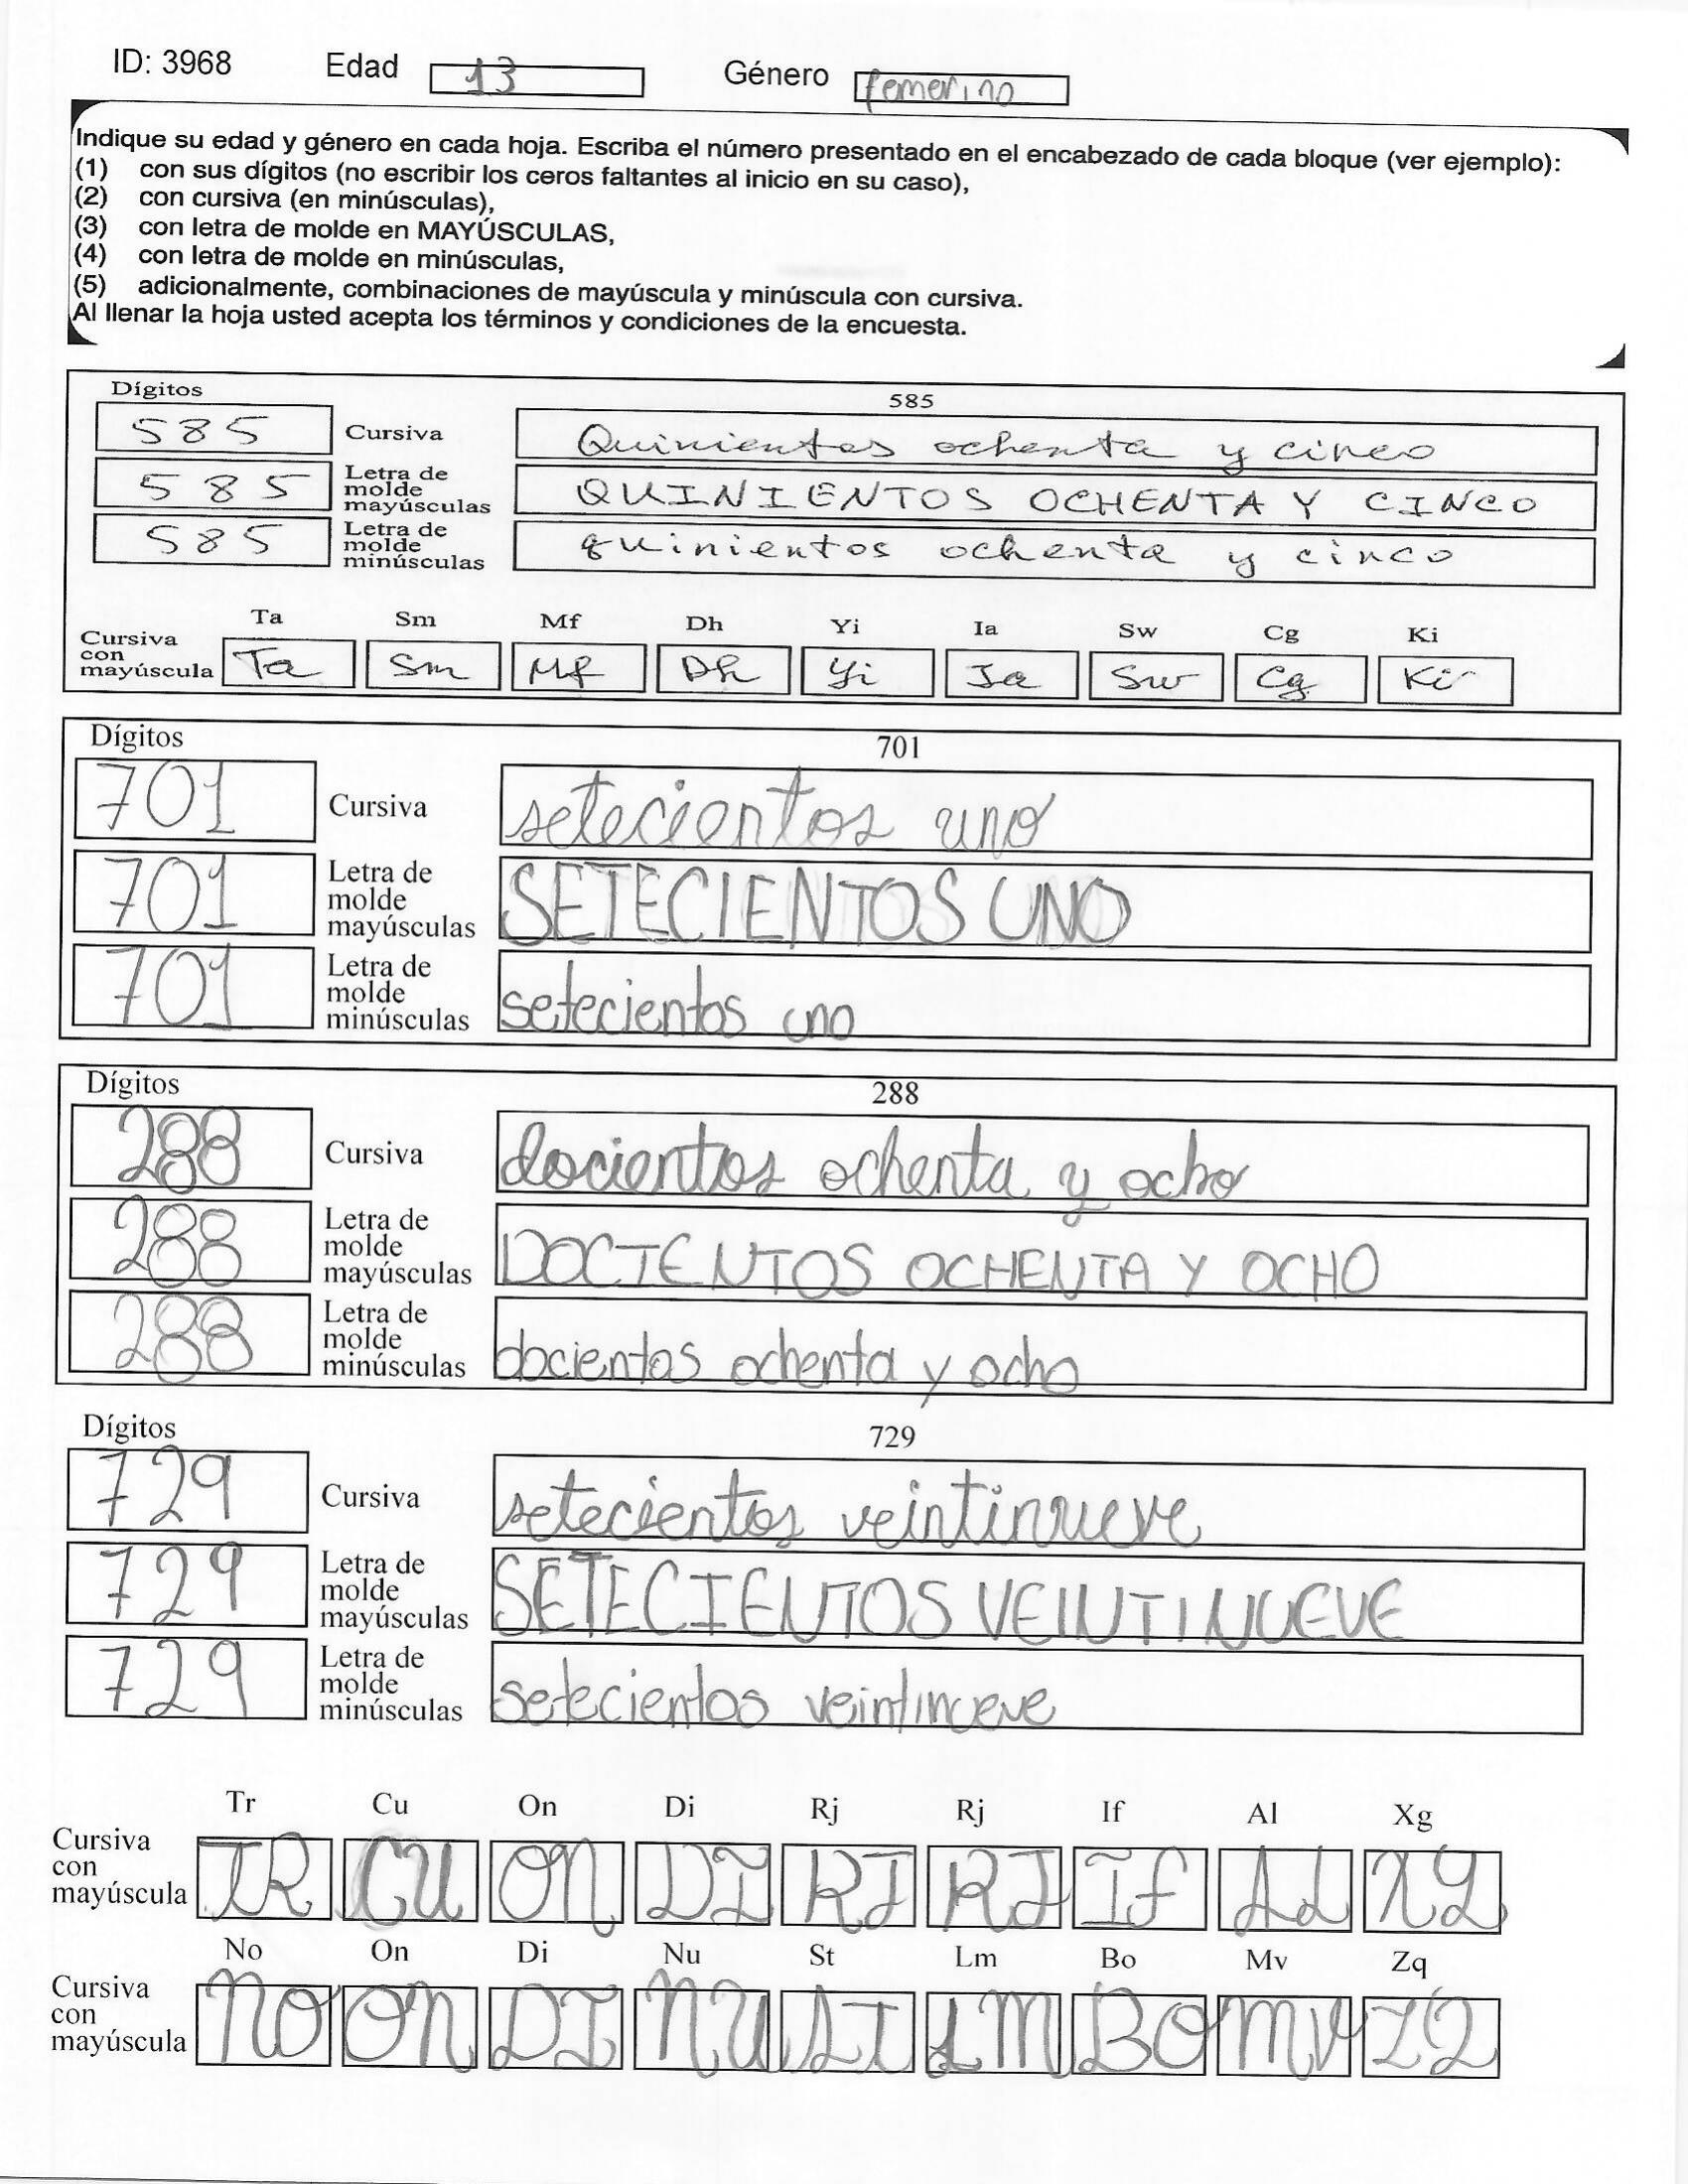 ID: 3968 Edad 13 Género femenino
Indique su edad y género en cada hoja. Escriba el número presentado en el encabezado de cada bloque (ver ejemplo):
(1) con sus dígitos (no escribir los ceros faltantes al inicio en su caso),
(2) con cursiva (en minúsculas),
(3) con letra de molde en MAYÚSCULAS,
(4) con letra de molde en minúsculas,
(5) adicionalmente, combinaciones de mayúscula y minúscula con cursiva.
Al llenar la hoja usted acepta los términos y condiciones de la encuesta.
Dígitos 585
585 Cursiva Quinientos ochenta y cinco
585 Letra de molde mayúsculas QUINIENTOS OCHENTA Y CINCO
585 Letra de molde minúsculas quinientos ochenta y cinco
Ta Sm Mf Dh Yi Ia Sw Cg Ki
Cursiva con mayúscula Ta Sm Mf Dh Yi Ia Sw Cg Ki
Dígitos 701
701 Cursiva setecientos uno
701 Letra de molde mayúsculas SETECIENTOS UNO
701 Letra de molde minúsculas setecientos uno
Dígitos 288
288 Cursiva docientos ochenta y ocho
288 Letra de molde mayúsculas DOCIENTOS OCHENTA Y OCHO
288 Letra de molde minúsculas docientos ochenta y ocho
Dígitos 729
729 Cursiva setecientos veintinueve
729 Letra de molde mayúsculas SETECIENTOS VEINTINUEVE
729 Letra de molde minúsculas setecientos veintinueve
Tr Cu On Di Rj Rj If Al Xg
Cursiva con mayúscula TR CU ON DI RJ RJ If AL XG
No On Di Nu St Lm Bo Mv Zq
Cursiva con mayúscula NO ON DI NU ST LM BO MV ZQ